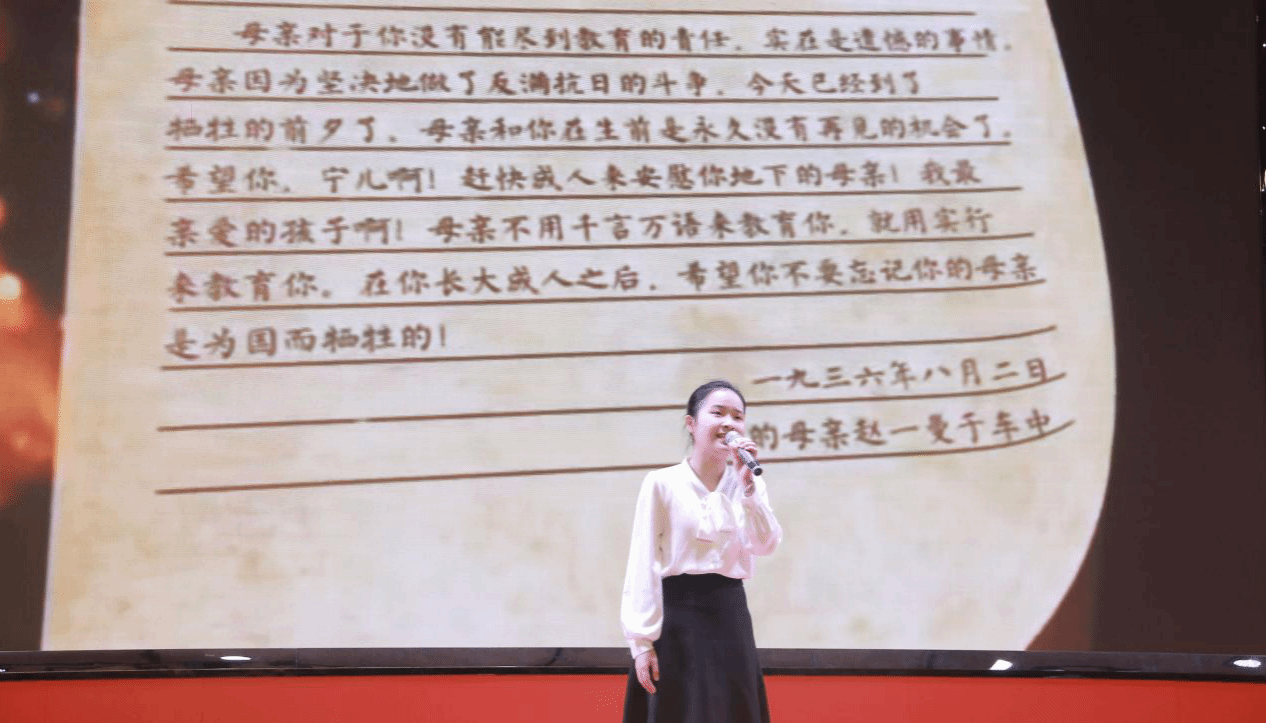 母亲对于你没有能尽到教育的责任，实在是遗憾的事情。
母亲因为坚决地做了反满抗日的斗争，今天已经到了
牺牲的前夕了。母亲和你在生前是永久没有再见的机会了。
希望你，宁儿啊！赶快成人来安慰你地下的母亲！我最
亲爱的孩子啊！母亲不用千言万语来教育你，就用实行
来教育你。在你长大成人之后，希望你不要忘记你的母亲
是为国而牺牲的！
一九三六年八月二日
的母亲赵一曼于车中